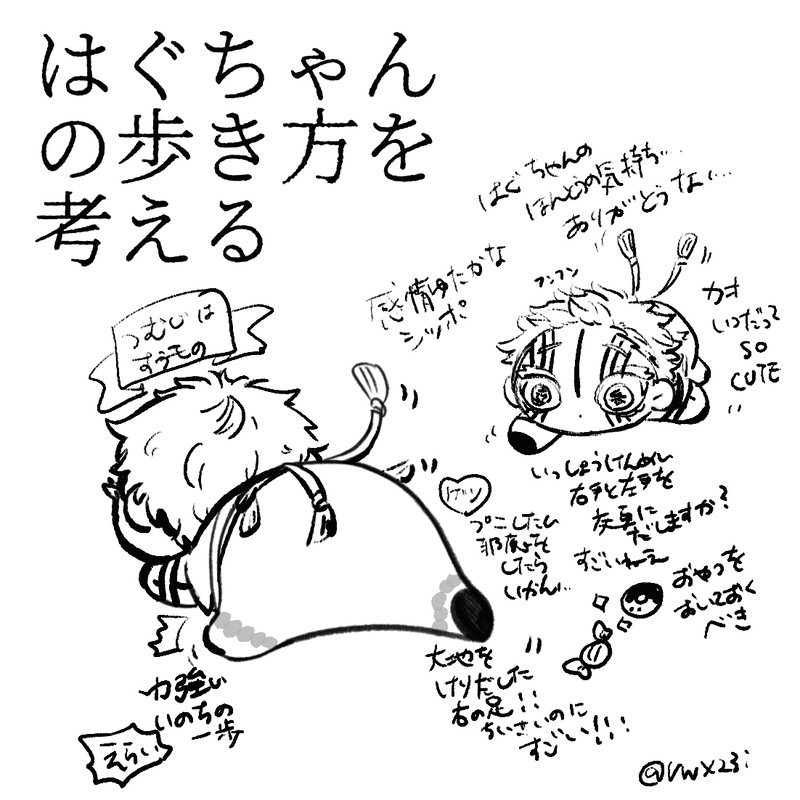 はぐちゃん
の歩き方を
考える
はぐちゃんの
ほんとうの気持ち…
ありがとうな…
感情ゆたかな
シッポ
フンフン
カオ
いつだって
SO
CUTE
つむじは
すうもの
いっしょうけんめい
右手と左手を
交互に
だしますか?
すごいねえ
プニしたい
邪魔を
したら
いかん…
おやつを
おいておく
べき
大地を
けりだした
右の足!!
ちいさいのに
すごい!!!
力強い
いのちの
一歩
えらい